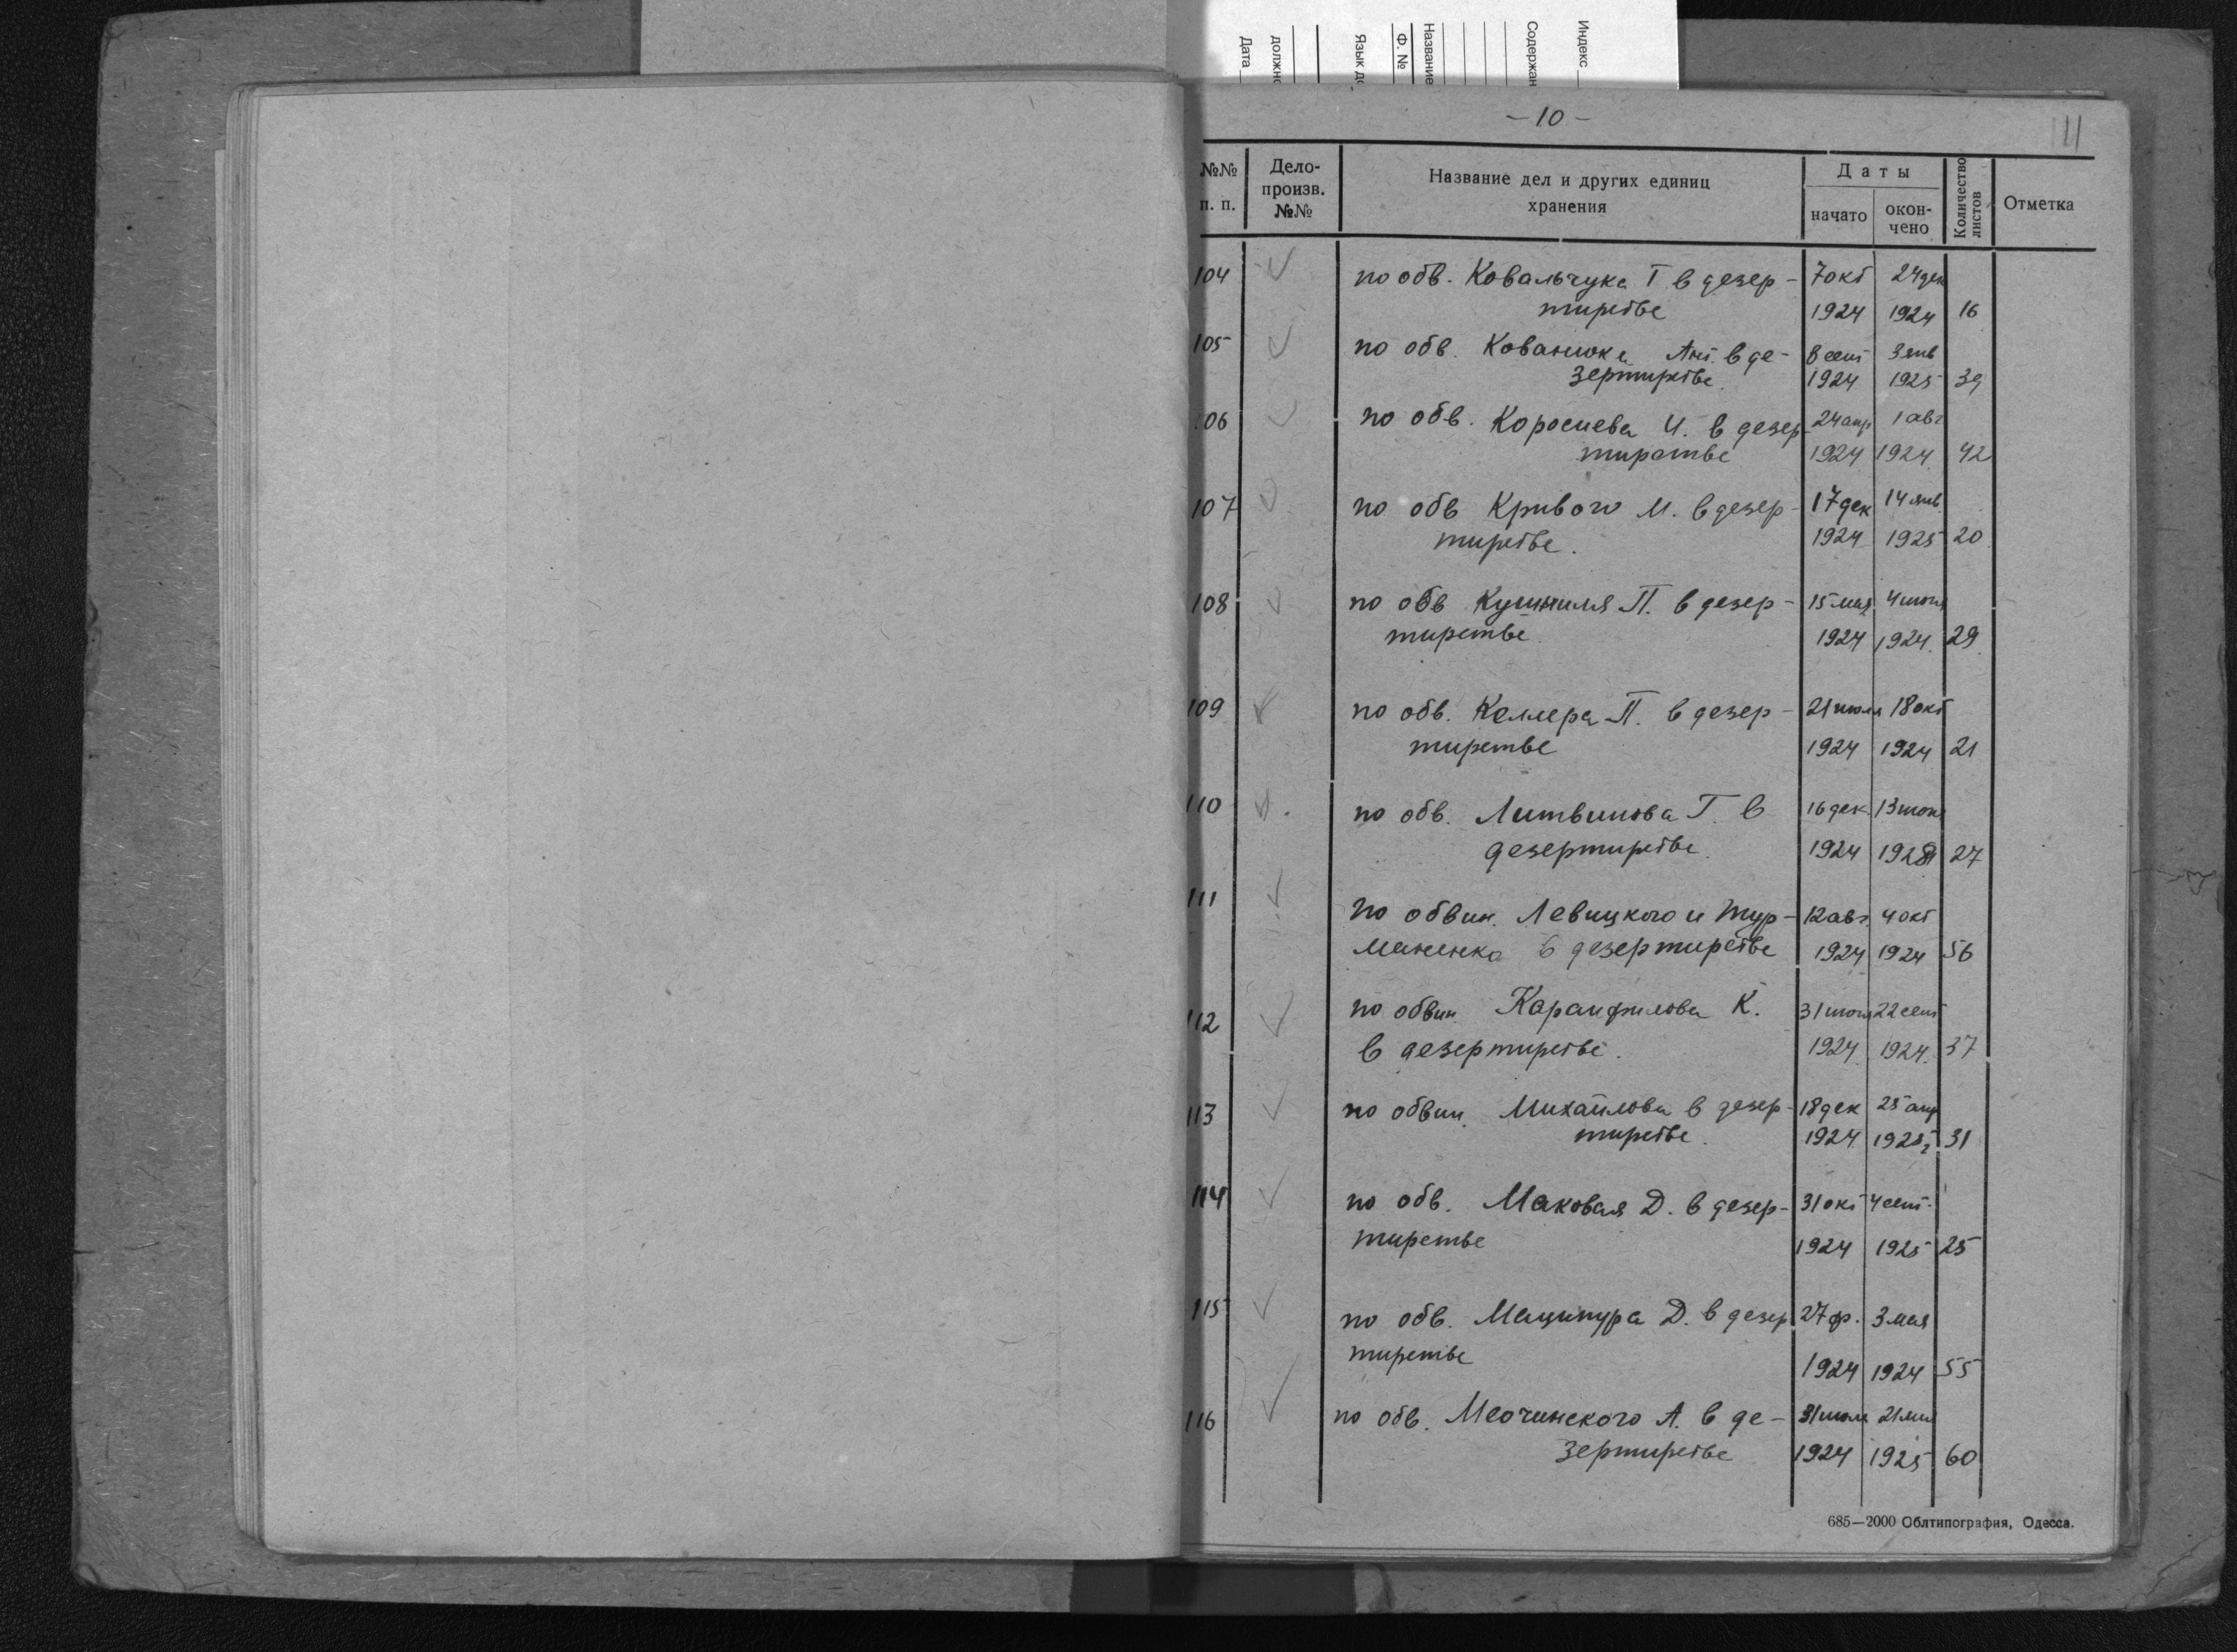 Индекс
Содержан
Название
Ф. №
Язык д
должн
Дата
— 10 —
11
№№ п. п.
Дело-произв. №№
Название дел и других единиц хранения
Даты
начато
окон-чено
Количество листов
Отметка
104 по обв. Ковальчука Г в дезер- 7 окт 24 дек
тирстве 1924 1924 16
105 по обв. Кованюка Ант. в де- 8 сент 3 янв
зертирстве. 1924 1925 39
106 по обв. И. в дезер- 24 апр 1 авг
тирстве 1924 1924 42
107 по обв Кривого М. в дезер- 17 дек 14 янв
тирстве. 1924 1925 20
108 по обв П. в дезер- 15 мая 4
тирстве. 1924 1924. 29
109 по обв. Келлера П. в дезер- 21 июля 18 окт
тирстве 1924 1924 21
110 по обв. Литвинова Г. в 16 дек 13
дезертирстве. 1924 27
111 по обвин. Левицкого и Тур- 12 авг. 4 окт
маненко в дезертирстве 1924 1924 56
112 по обвин. Каранфилова К. 31 22 сент
в дезертирстве. 1924 1924. 37
113 по обвин. Михайлова в дезер- 18 дек 25 апр
тирстве. 1924 1925 31
114 по обв. Маковая Д. в дезер- 31 окт 4 сент.
тирстве 1924 1925 25
115 по обв. Маципура Д. в дезер 27 ф. 3 мая
тирстве 1924 1924 55
116 по обв. Мочинского А. в де- 31 21
зертирстве 1924 1925 60
685—2000 Облтипография, Одесса.